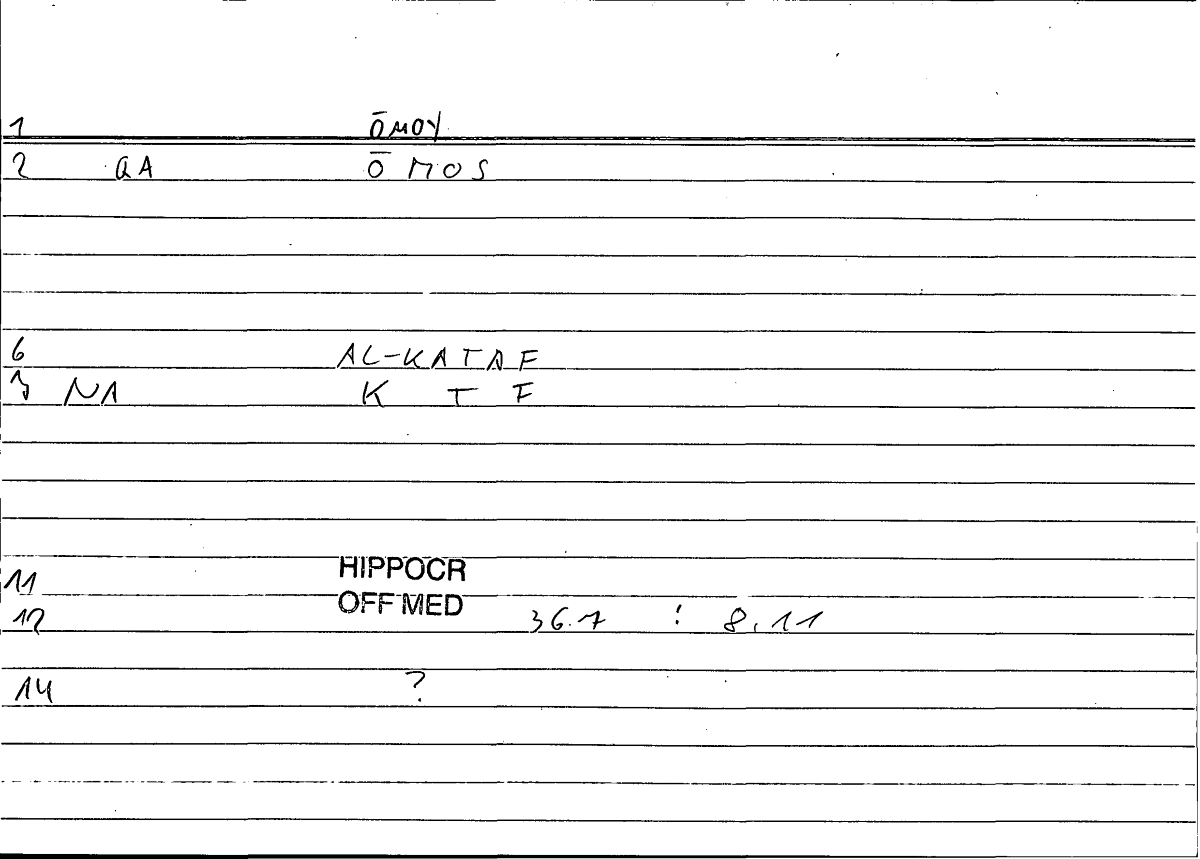 1 ŌMOY
2 QA ŌMOS
6 AL-KATAF
7 NA K T F
11 HIPPOCR
12 OFF MED 36.7 : 8,11
14 ?